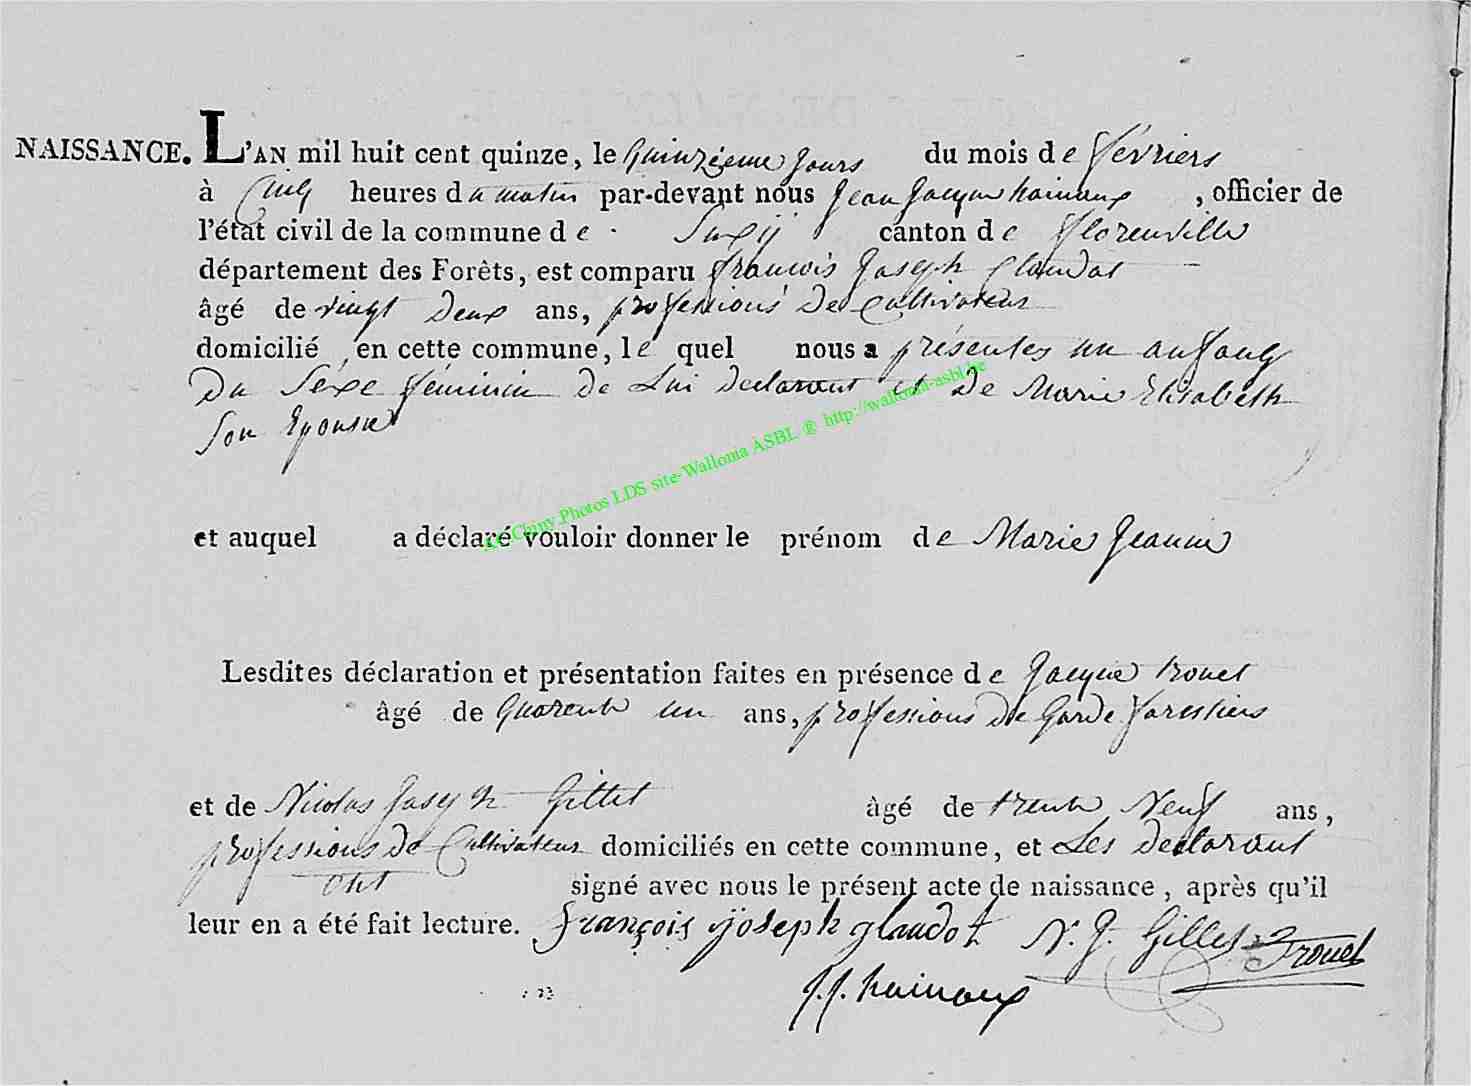 NAISSANCE. L'AN mil huit cent quinze, le Quinzieme Jours du mois de févriers
à Cinq heures du matin par-devant nous Jean Jacque hainaux , officier de
l'état civil de la commune de Suxÿ canton de florenville
département des Forêts, est comparu francois Joseph Glaudot
âgé de vingt Deux ans, professions De Cultivateur
domicilié en cette commune, le quel nous a présentes un anfang
Du Séxe féminin de Lui declarant et De Marie Elisabeth
Son Epouse
AC Chiny Photos LDS site-Wallonia ASBL ® http://wallonia-asbl.be
et auquel a déclaré vouloir donner le prénom de Marie Jeanne
Lesdites déclaration et présentation faites en présence de Jacque trouet
âgé de Quarente un ans, professions De Garde forestiers
et de Nicolas Joseph Gillet âgé de trente Neuf ans,
professions De Cultivateur domiciliés en cette commune, et Les Declarant
Ont signé avec nous le présent acte de naissance, après qu'il
leur en a été fait lecture. françois joseph glaudot N. J. Gillet Trouet
J. J. hainaux